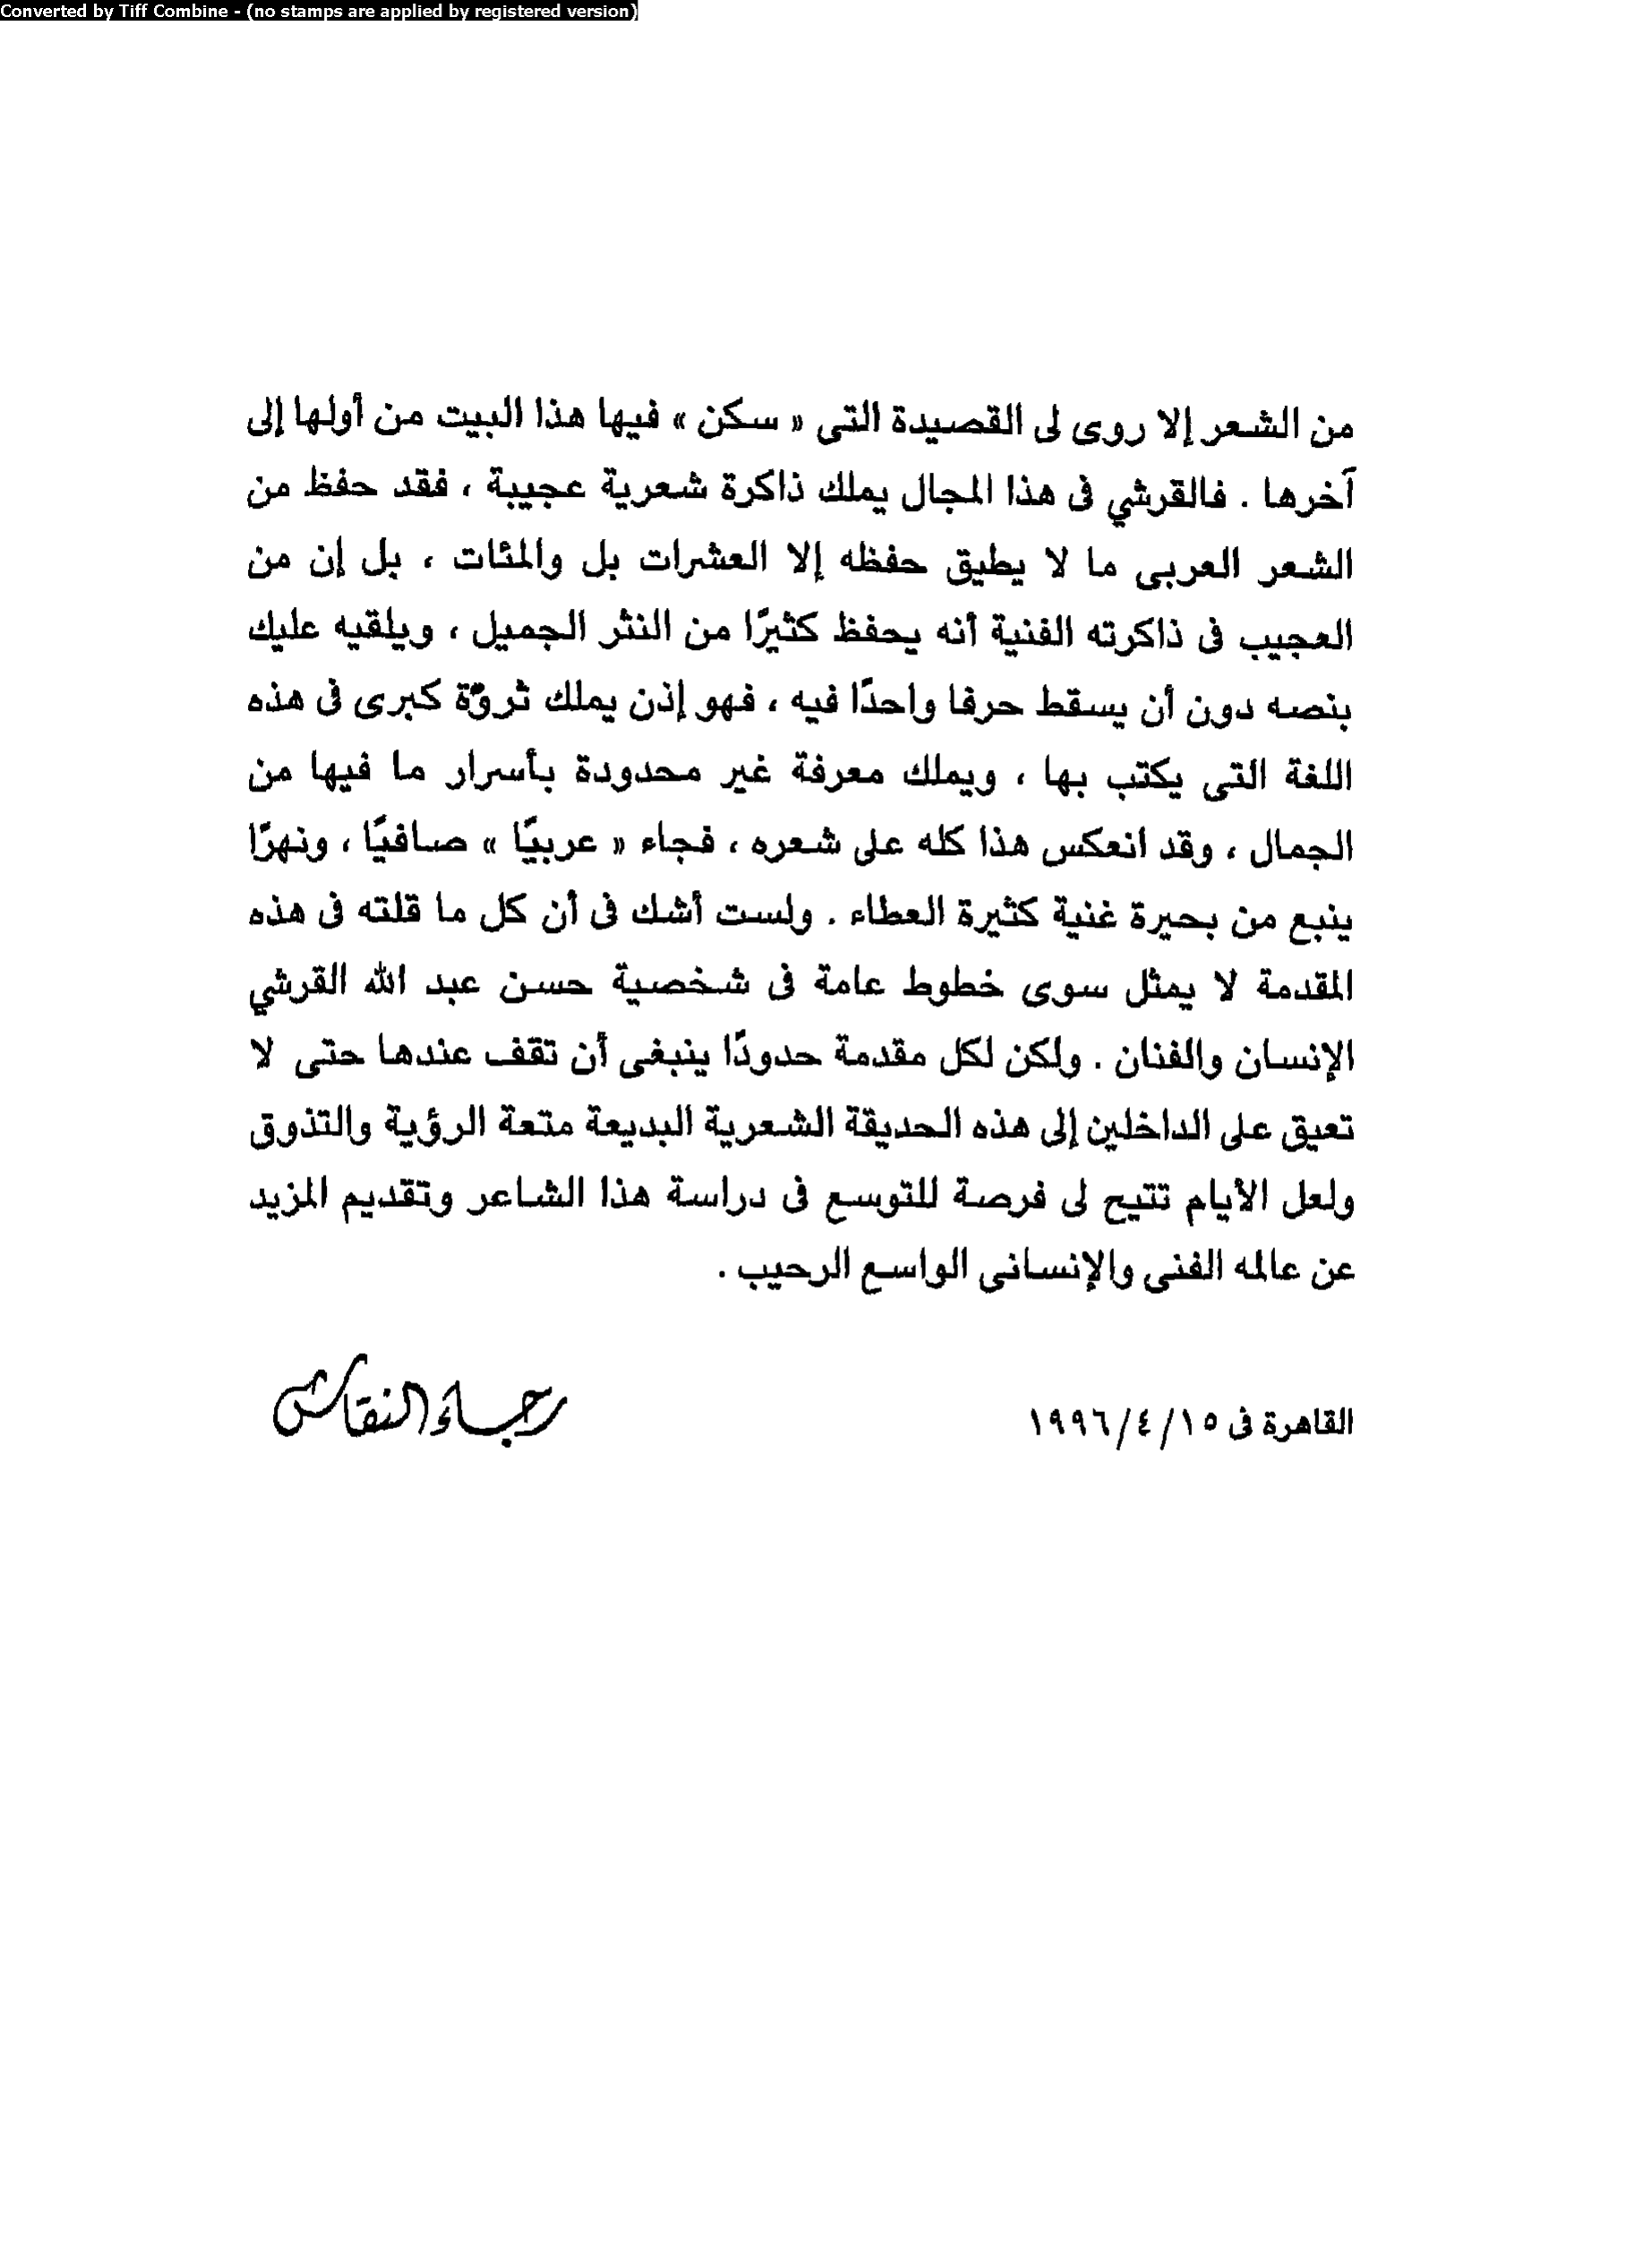 Converted by Tiff Combine - (no stamps are applied by registered version)
من الشعر إلا روى لى القصيدة التى « سكن » فيها هذا البيت من أولها إلى
آخرها . فالقرشي فى هذا المجال يملك ذاكرة شعرية عجيبة ، فقد حفظ من
الشعر العربى ما لا يطيق حفظه إلا العشرات بل والمئات ، بل إن من
العجيب فى ذاكرته الفنية أنه يحفظ كثيرًا من النثر الجميل ، ويلقيه عليك
بنصه دون أن يسقط حرفا واحدًا فيه ، فهو إذن يملك ثروّة كبرى فى هذه
اللغة التى يكتب بها ، ويملك معرفة غير محدودة بأسرار ما فيها من
الجمال ، وقد انعكس هذا كله على شعره ، فجاء « عربيًا » صافيًا ، ونهرًا
ينبع من بحيرة غنية كثيرة العطاء . ولست أشك فى أن كل ما قلته فى هذه
المقدمة لا يمثل سوى خطوط عامة فى شخصية حسن عبد الله القرشي
الإنسان والفنان . ولكن لكل مقدمة حدودًا ينبغى أن تقف عندها حتى لا
تعيق على الداخلين إلى هذه الحديقة الشعرية البديعة متعة الرؤية والتذوق
ولعل الأيام تتيح لى فرصة للتوسع فى دراسة هذا الشاعر وتقديم المزيد
عن عالمه الفنى والإنسانى الواسع الرحيب .
القاهرة فى ١٥/٤/١٩٩٦
رجاء النقاش